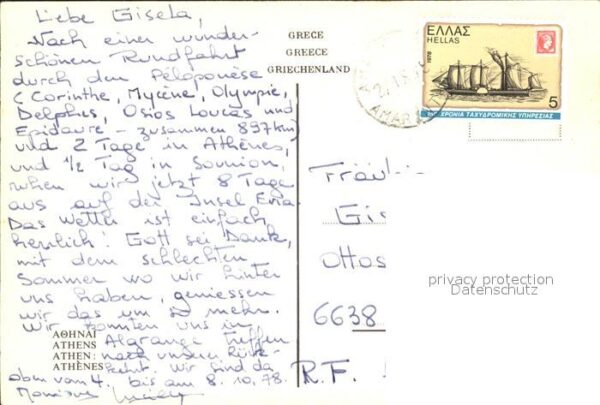 Liebe Gisela,
Nach einer wunder-
schönen Rundfahrt
durch den Péloponèse
(Corinthe, Mycène, Olympie,
Delphes, Osios Loucas und
Epidaure - zusammen 897 km)
und 2 Tage in Athènes,
und 1/2 Tag in Sounion,
ruhen wir jetzt 8 Tage
aus auf der Insel Evia.
Das Wetter ist einfach
herrlich! Gott sei Dank,
mit dem schlechten
Sommer wo wir hinter
uns haben, geniessen
wir das um so mehr.
Wir könnten uns in
Algrange treffen
nach unserer Rück-
kehr. Wir sind da
oben vom 4. bis am 8.10.78.
GRECE
GREECE
GRIECHENLAND
ΑΘΗΝΑΙ
ATHENS
ATHEN
ATHÈNES
ΕΛΛΑΣ
HELLAS
1978
5
ΧΡΟΝΙΑ ΤΑΧΥΔΡΟΜΙΚΗΣ ΥΠΗΡΕΣΙΑΣ
Fräul
Gis
Ottos
6638
R.F.
privacy protection
Datenschutz